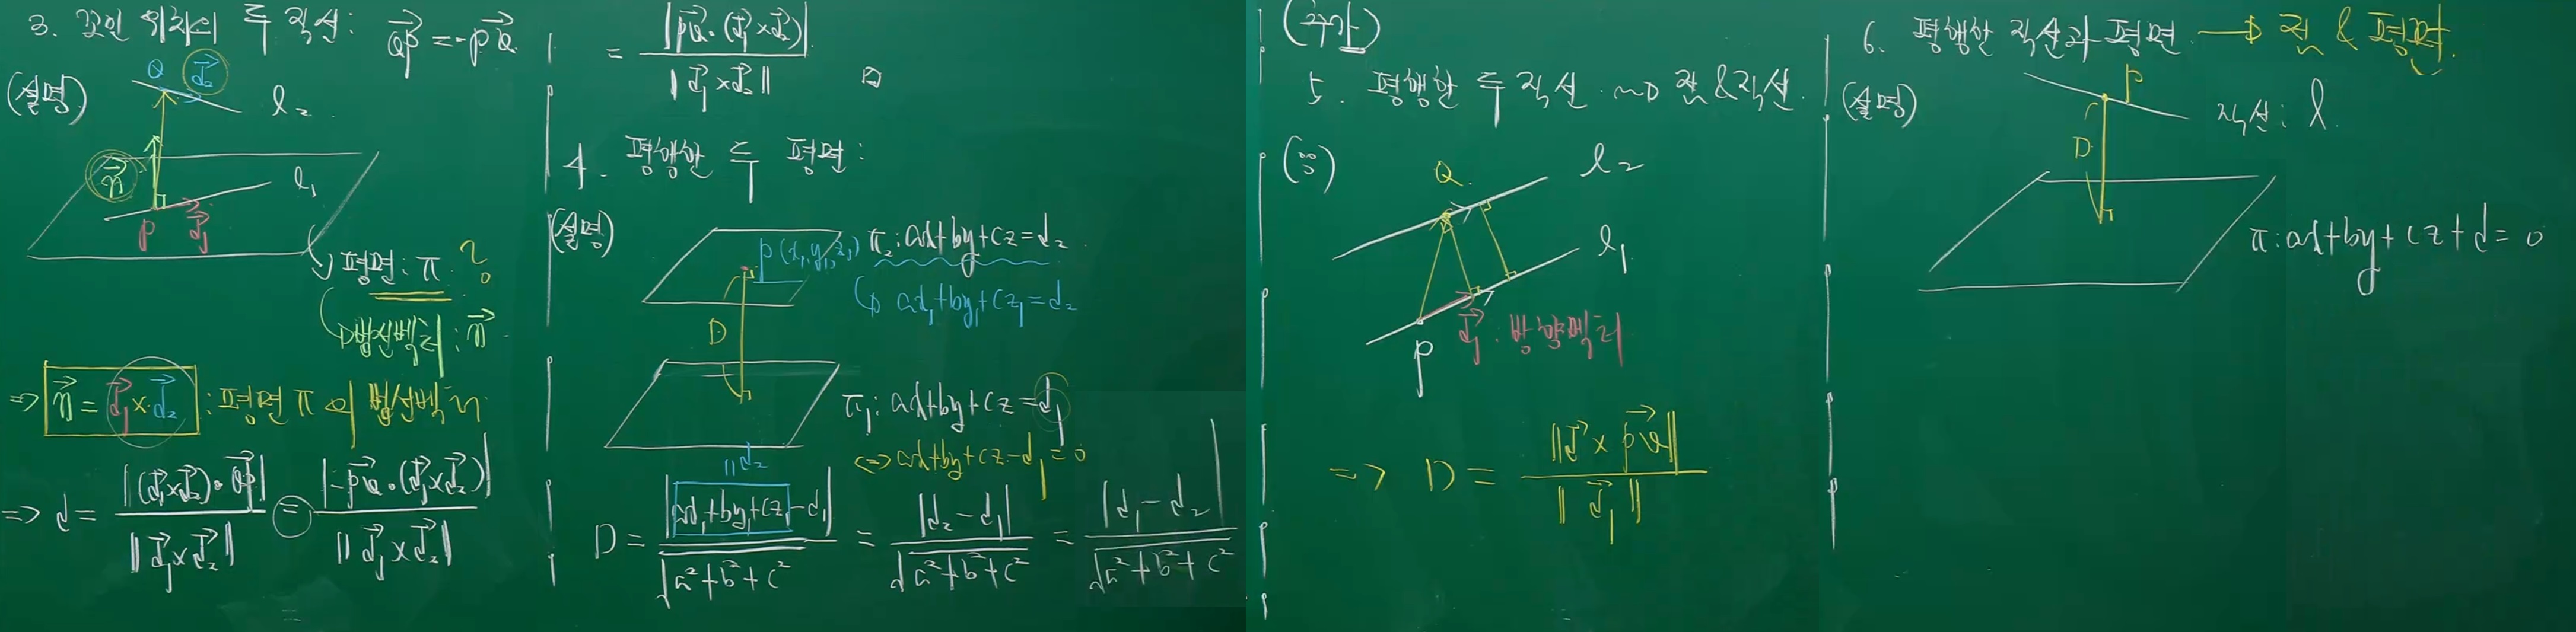 3. 꼬인 위치의 두 직선: \vec{QP} = -\vec{PQ}
(설명)
Q \vec{d_2}
l_2
\vec{n}
l_1
P \vec{d_1}
평면: π ?
법선벡터: \vec{n}
=> \vec{n} = \vec{d_1} × \vec{d_2} : 평면 π의 법선벡터
=> d = |(\vec{d_1}×\vec{d_2})·\vec{QP}| / ||\vec{d_1}×\vec{d_2}|| = |-\vec{PQ}·(\vec{d_1}×\vec{d_2})| / ||\vec{d_1}×\vec{d_2}||
= |\vec{PQ}·(\vec{d_1}×\vec{d_2})| / ||\vec{d_1}×\vec{d_2}||
4. 평행한 두 평면:
(설명)
P(x_1, y_1, z_1) π_2: ax+by+cz=d_2
ax_1+by_1+cz_1=d_2
D
π_1: ax+by+cz=d_1
<=> ax+by+cz-d_1=0
|| d_2
D = |ax_1+by_1+cz_1-d_1| / √(a²+b²+c²) = |d_2-d_1| / √(a²+b²+c²) = |d_1-d_2| / √(a²+b²+c²)
(추가)
5. 평행한 두 직선 ~> 점&직선.
Q l_2
l_1
P \vec{d_1}: 방향벡터
=> D = ||\vec{d}×\vec{PQ}|| / ||\vec{d_1}||
6. 평행한 직선과 평면 → 점 & 평면.
(설명)
P
직선: l
D
π: ax+by+cz+d=0